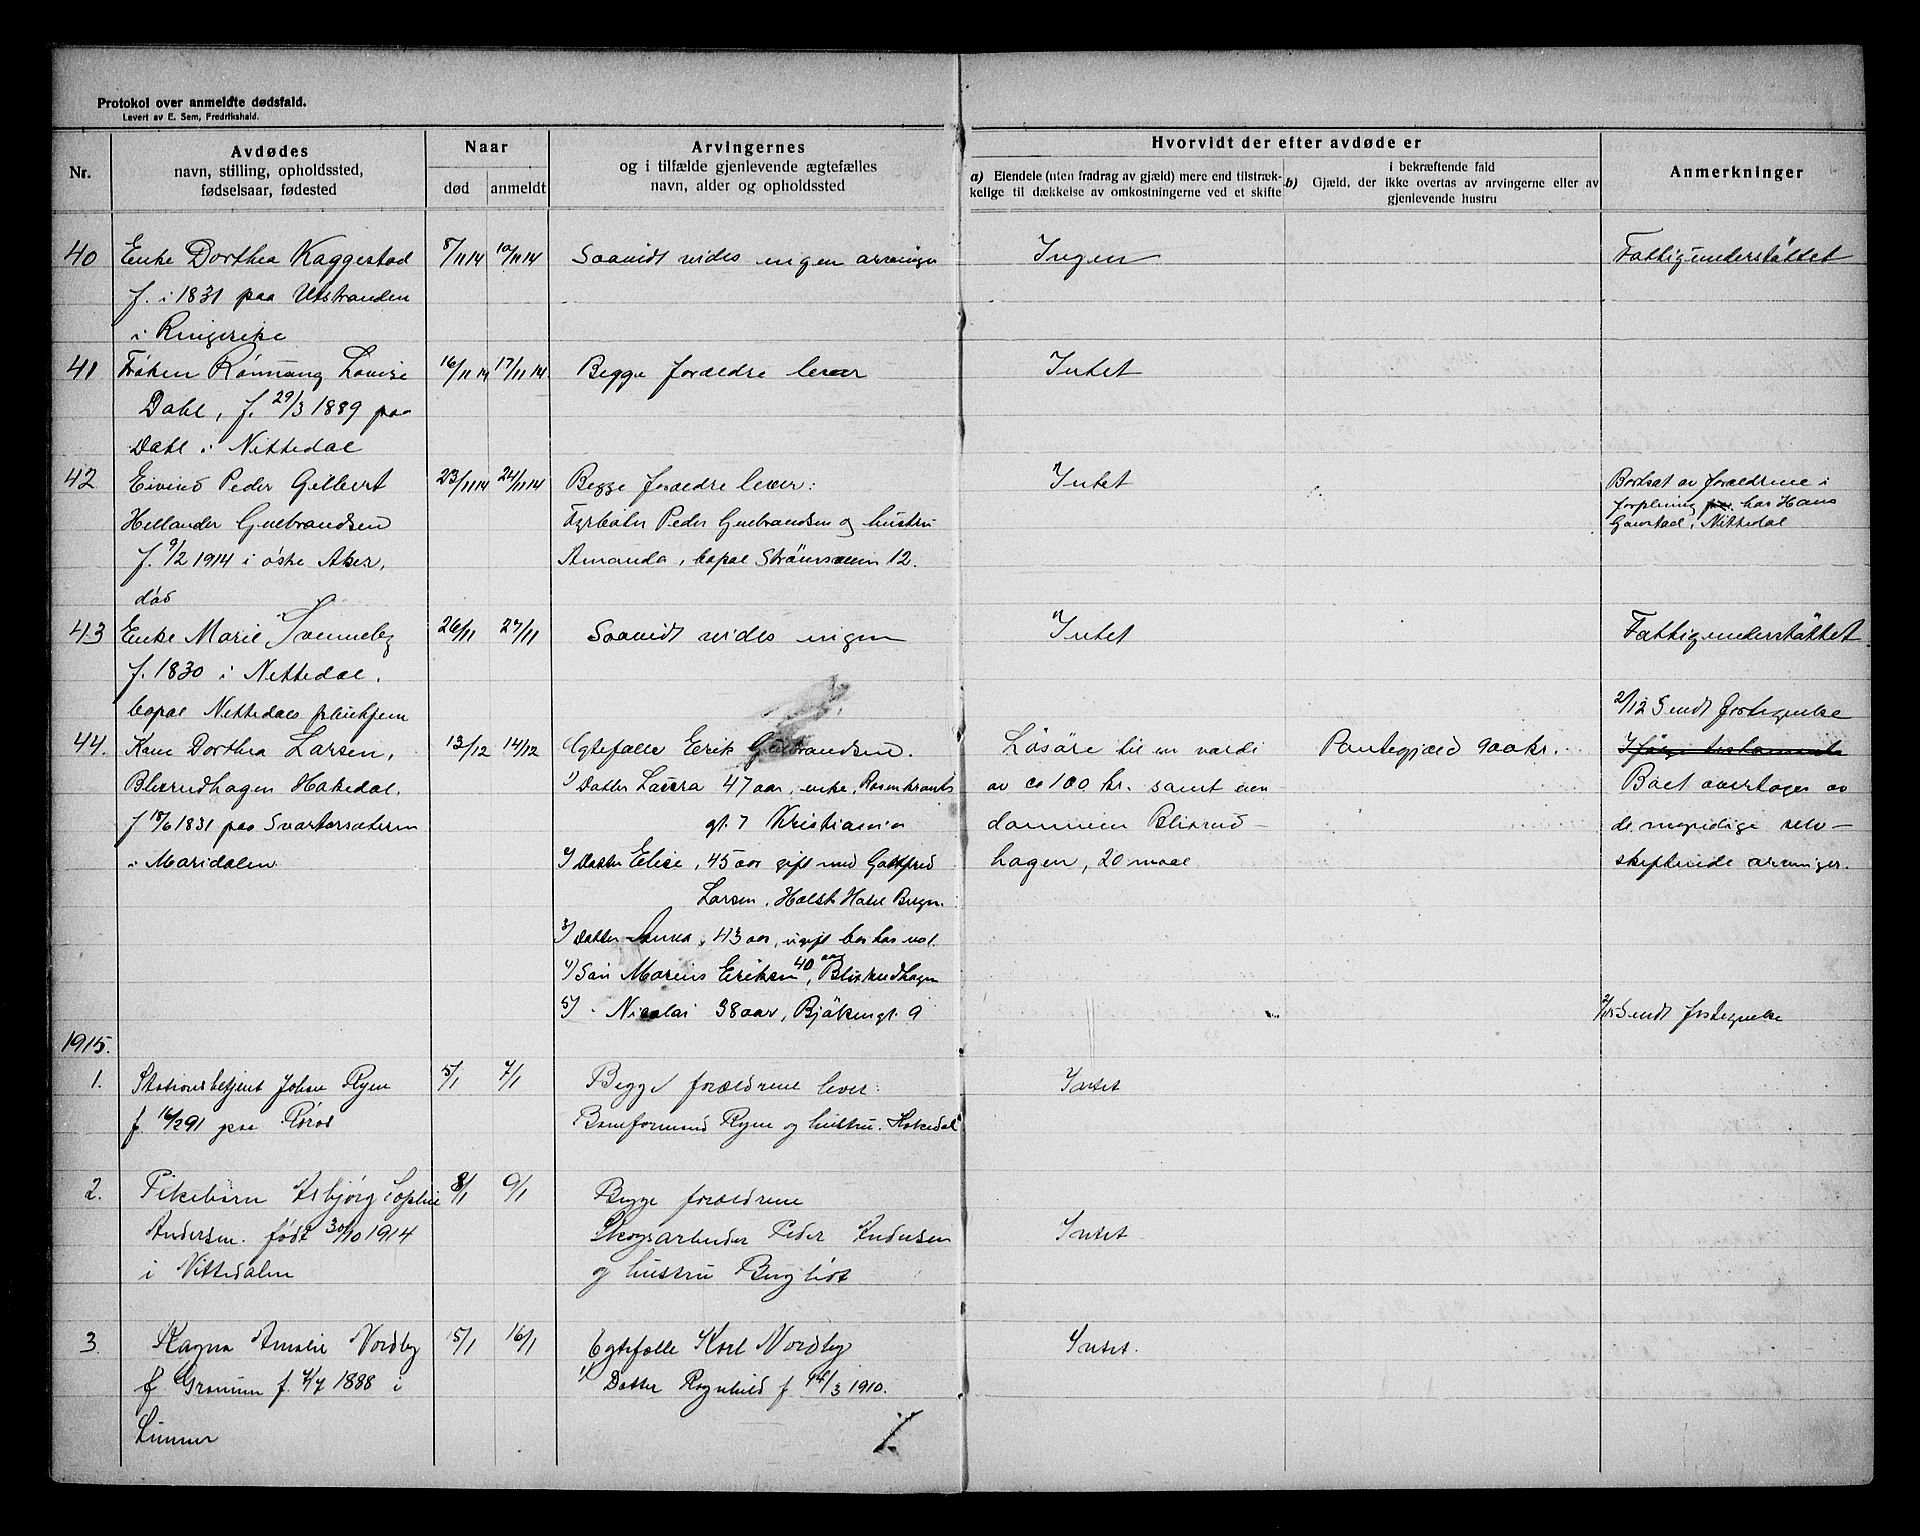 Protokol over anmeldte dødsfald.
Levert av E. Sem, Fredrikshald.
Nr.
Avdødes
navn, stilling, opholdssted,
fødselsaar, fødested
Naar
død
anmeldt
Arvingernes
og i tilfælde gjenlevende ægtefælles
navn, alder og opholdssted
Hvorvidt der efter avdøde er
a) Eiendele (uten fradrag av gjæld) mere end tilstræk-
kelige til dækkelse av omkostningerne ved et skifte
i bekræftende fald
b) Gjæld, der ikke overtas av arvingerne eller av
gjenlevende hustru
Anmerkninger
40 Enke Dorthea Kaggestad 8/11 14 10/11 14 Saavidt vides ingen arvinger Ingen Fattigunderstøttet
f. i 1831 paa Utstranden
i Ringerike
41 Frøken Rønnaug Lovise 16/11 14 17/11 14 Begge forældre lever Intet
Dahl, f. 29/3 1889 paa
Dahl i Nittedal
42 Eivind Peder Gilbert 23/11 14 24/11 14 Begge forældre lever: Intet Bortsat av forældrene i
Hellander Gulbrandsen Fyrbøter Peder Gulbrandsen og hustru forpleining hos Hans
f. 9/2 1914 i østre Aker, Amanda, bopæl Strømsveien 12. Gaustad, Nittedal
død
43 Enke Marie Svenneby 26/11 27/11 Saavidt vides ingen Intet Fattigunderstøttet
f. 1830 i Nittedal.
bopæl Nittedals pleiehjem 2/12 Sendt fortegnelse
44. Kone Dorthea Larsen, 13/12 14/12 Egtefælle Erik Gulbrandsen. Løsøre til en værdi Pantegjæld 900 kr. I følge testamente
Blixrudhagen Hakedal. 1) Datter Laura 47 aar, enke, Rosenkrants av ca 100 kr. samt eien Boet overtages av
f 18/6 1831 paa Svartorsæteren gt. 7 Kristiania dommen Blixrud- de myndige selv-
i Maridalen 2) Datter Elise, 45 aar gift med Gottfred hagen, 20 maal skiftende arvinger.
Larsen, Holst Hakel Bergn.
3) Datter Anna, 43 aar, ugift bor hos
4) Søn Marius Eriksen 40 aar, Blixrudhagen
5) - Nicolai 38 aar, Bjølsengt. 9 Sendt fortegnelse
1915.
1. Stationsbetjent Johan Ryen 5/1 7/1 Begge forældrene lever: Intet
f 16/2 91 paa Røros Baneformand Ryen og hustru. Hakedal
2. Pikebarn Asbjørg Sophie 8/1 9/1 Begge forældrene
Andersen. født 30/10 1914 Skogsarbeider Peder Andersen Intet
i Nittedalen og hustru Berg
3. Ragna Amalie Nordby 5/1 16/1 Egtefælle Karl Nordby Intet.
f Granum f. 4/7 1888 i 1) Datter Ragnhild f 14/3 1910.
Lunner